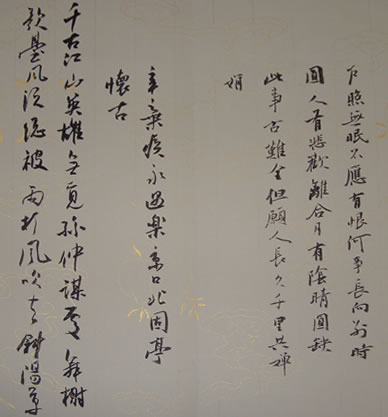 戶照無眠不應有恨何事長向別時
圓人有悲歡離合月有陰晴圓缺
此事古難全但願人長久千里共嬋
娟
辛棄疾永遇樂京口北固亭
懷古
千古江山英雄無覓孫仲謀處舞榭
歌臺風流總被雨打風吹去斜陽草